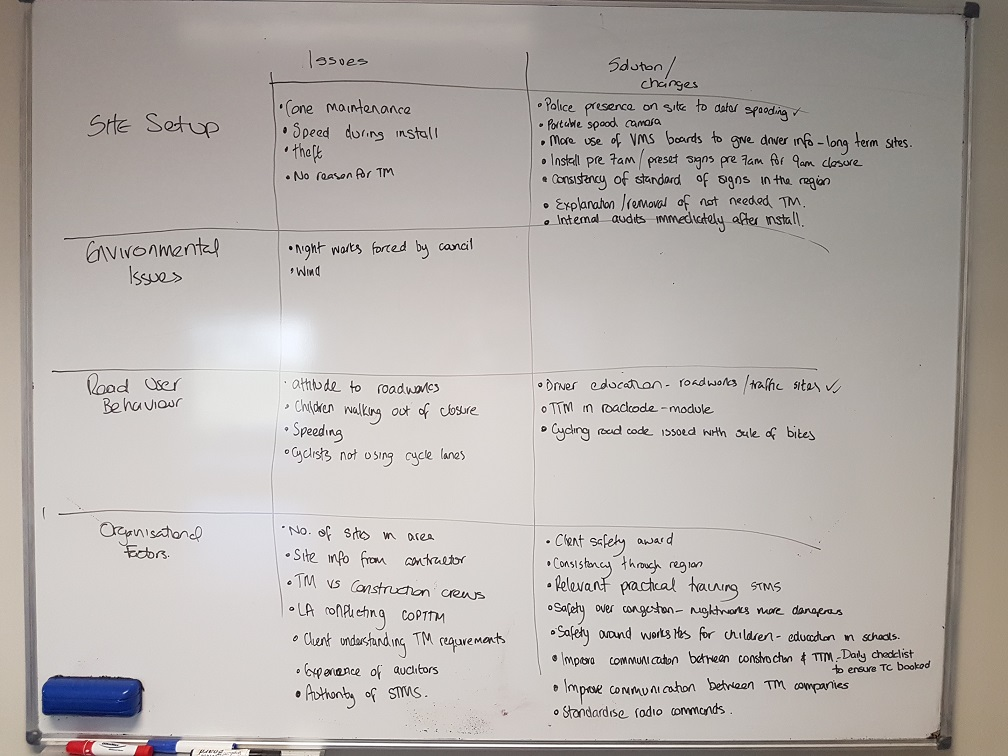 Issues
Solution/
changes
Site Setup
• Cone maintenance
• Speed during install
• theft
• No reason for TM
• Police presence on site to deter speeding ✓
• Portable speed camera
• More use of VMS boards to give driver info - long term sites.
• Install pre 7am / preset signs pre 7am for 9am closure
• Consistency of standard of signs in the region
• Explanation / removal of not needed TM.
• Internal audits immediately after install.
Environmental
Issues
• Night works forced by council
• Wind
Road User
Behaviour
• attitude to roadworks
• Children walking out of closure
• Speeding
• Cyclists not using cycle lanes
• Driver education - roadworks / traffic sites ✓
• TTM in roadcode - module
• Cycling road code issued with sale of bikes
Organisational
Factors.
• No. of sites in area
• Site info from contractor
• TM vs Construction crews
• LA conflicting COPTTM
• Client understanding TM requirements
• Experience of auditors
• Authority of STMS.
• Client safety award
• Consistency through region
• Relevant practical training STMS
• Safety over congestion - nightworks more dangerous
• Safety around worksites for children - education in schools.
• Improve communication between construction & TTM - Daily checklist
to ensure TC booked
• Improve communication between TM companies
• Standardise radio commands.